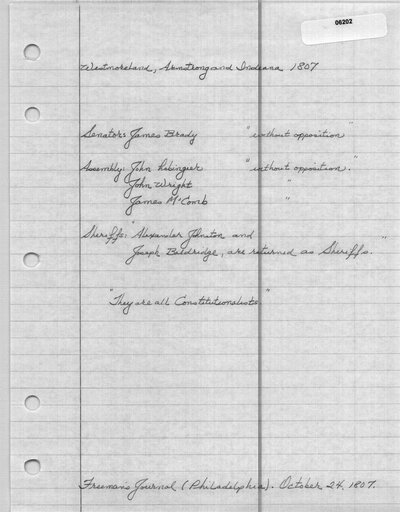 06202
Westmoreland, Armstrong and Indiana 1807
Senator: James Brady "without opposition"
Assembly: John Rabingier "without opposition."
John Wright "
James M'Comb "
Sheriffs: "Alexander Johnston and
Joseph Baldridge, are returned as Sheriffs."
"They are all Constitutionalists"
Freeman's Journal (Philadelphia). October 24, 1807.